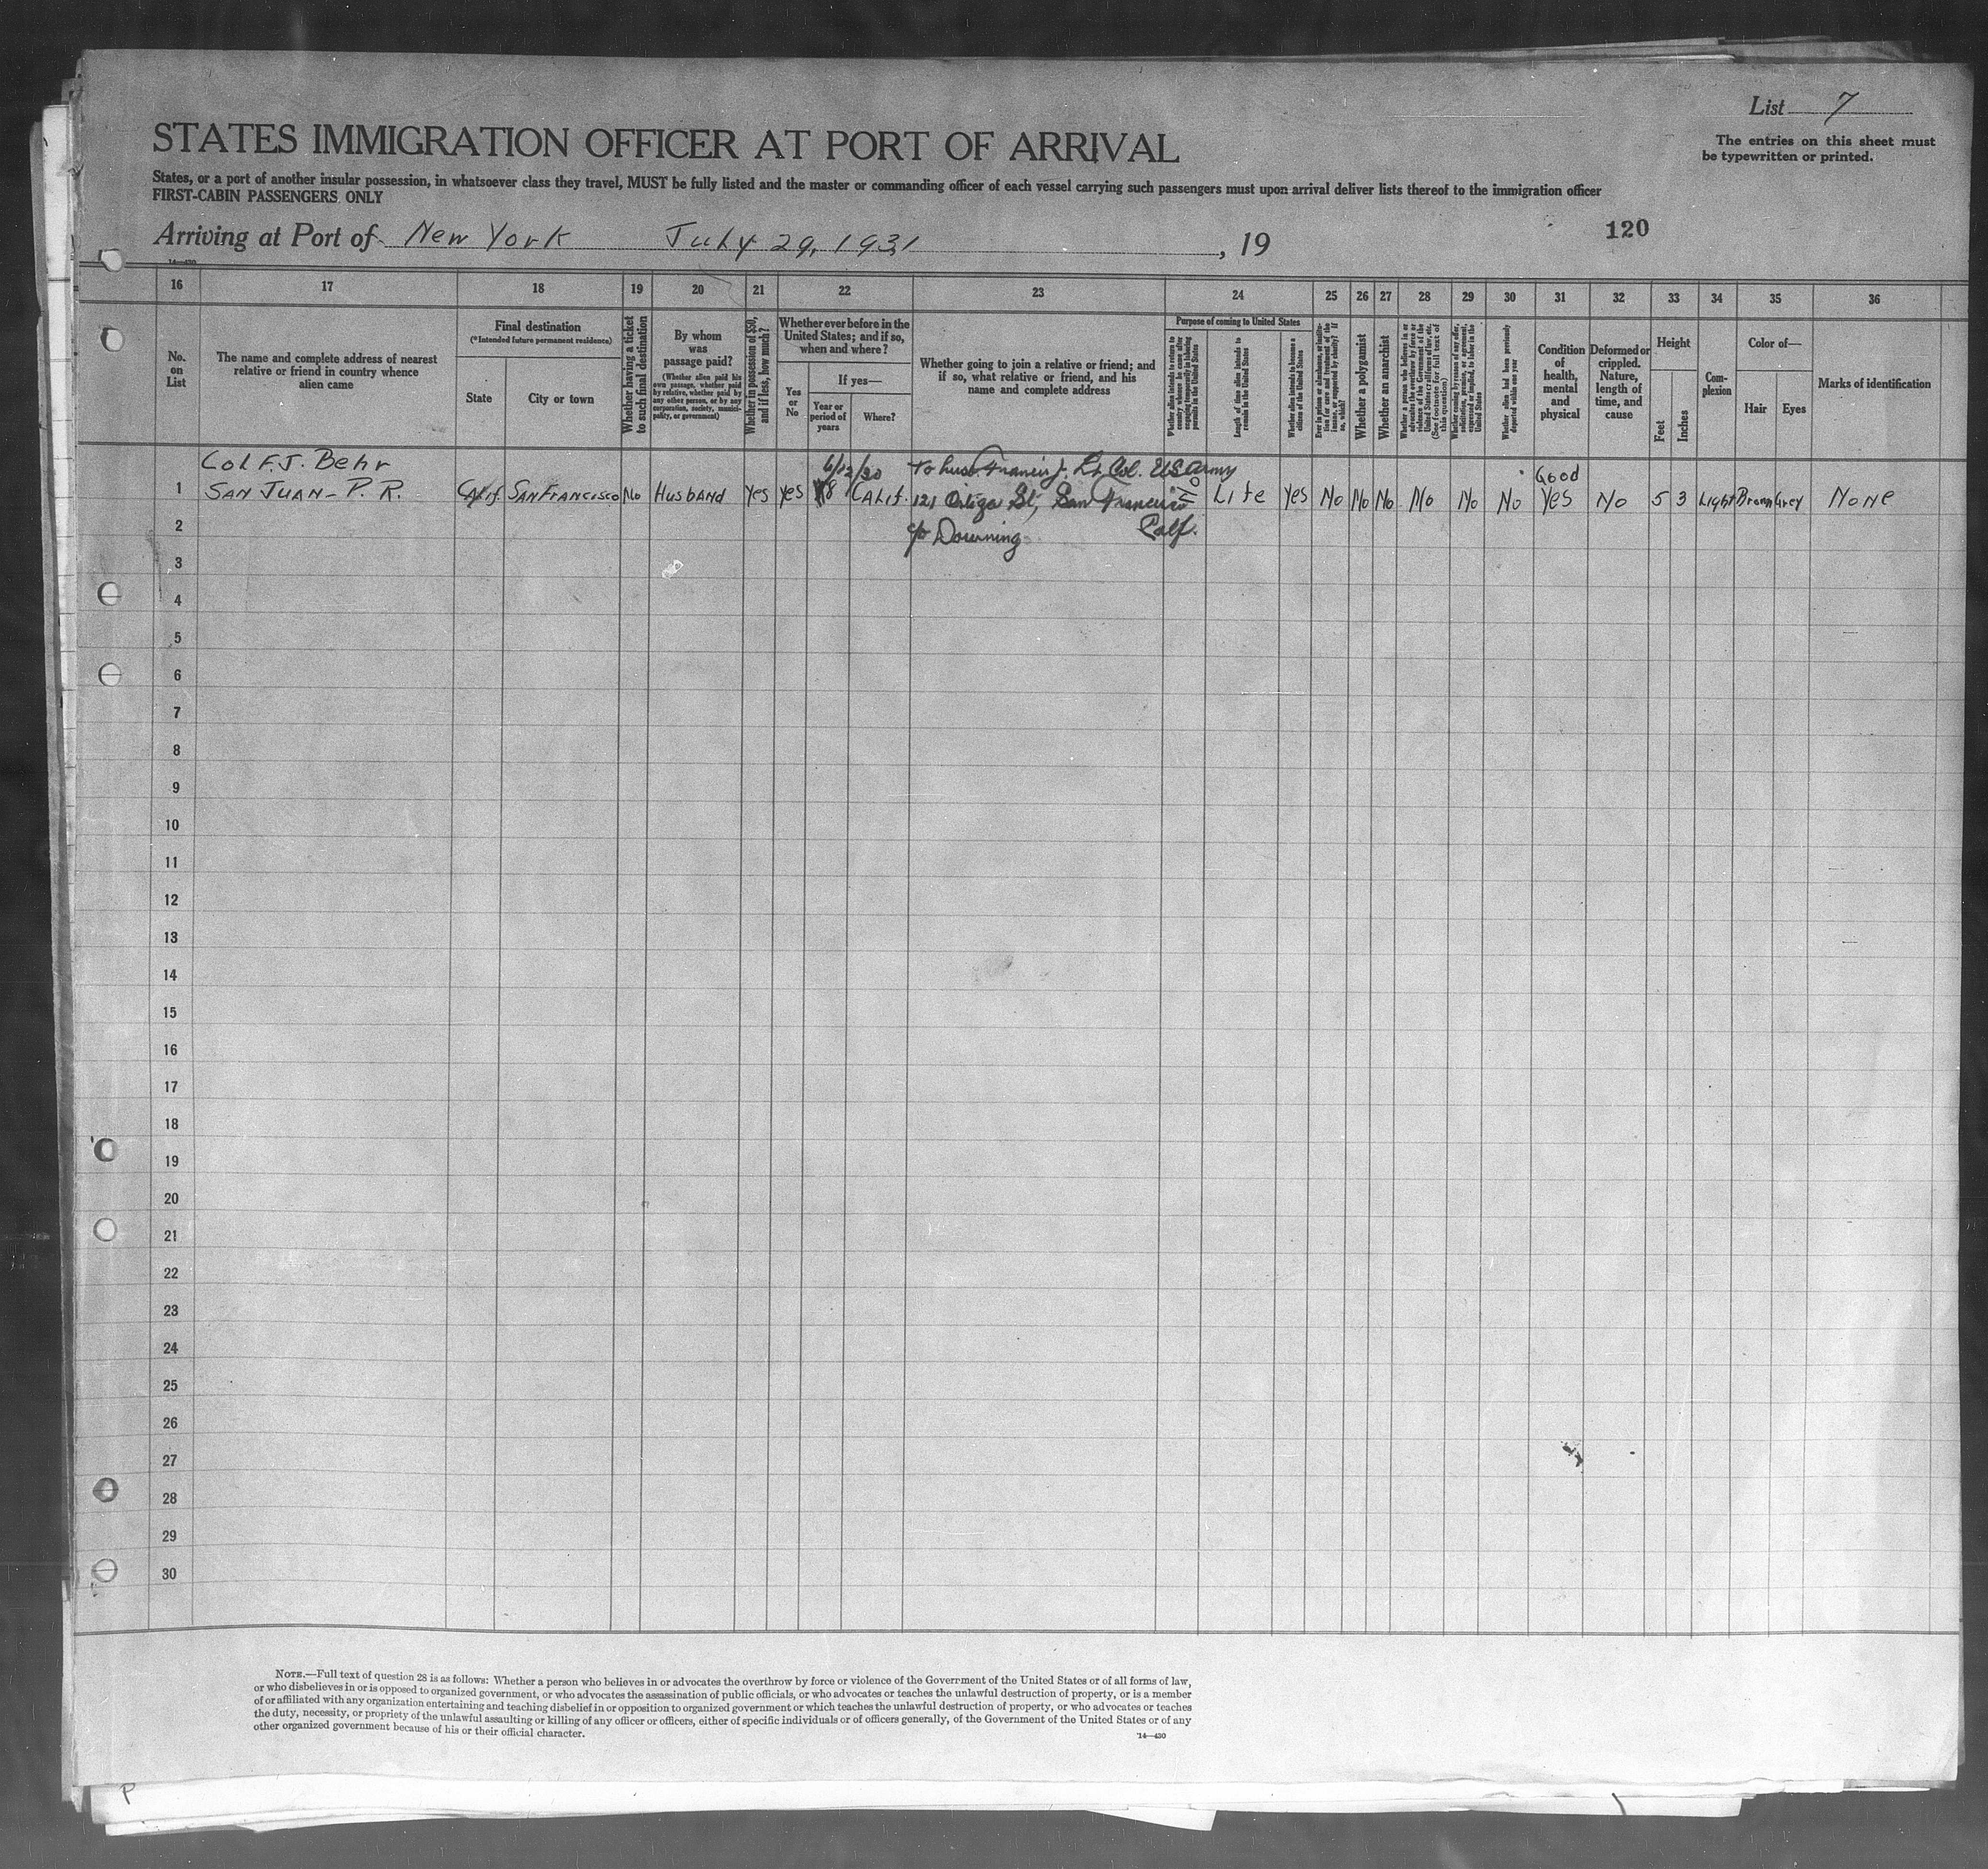 List 7
The entries on this sheet must
be typewritten or printed.
STATES IMMIGRATION OFFICER AT PORT OF ARRIVAL
States, or a port of another insular possession, in whatsoever class they travel, MUST be fully listed and the master or commanding officer of each vessel carrying such passengers must upon arrival deliver lists thereof to the immigration officer
FIRST-CABIN PASSENGERS ONLY
Arriving at Port of New York July 29, 1931, 19
120
14—430
16 17 18 19 20 21 22 23 24 25 26 27 28 29 30 31 32 33 34 35 36
No.
on
List
The name and complete address of nearest
relative or friend in country whence
alien came
Final destination
(*Intended future permanent residence)
State
City or town
Whether having a ticket
to such final destination
By whom
was
passage paid?
(Whether alien paid his
own passage, whether paid
by relative, whether paid by
any other person, or by any
corporation, society, munici-
pality, or government)
Whether in possession of $50,
and if less, how much?
Whether ever before in the
United States; and if so,
when and where?
Yes
or
No
If yes—
Year or
period of
years
Where?
Whether going to join a relative or friend; and
if so, what relative or friend, and his
name and complete address
Purpose of coming to United States
Whether alien intends to return to
country whence he came after
engaging temporarily in laboring
pursuits in the United States
Length of time alien intends to
remain in the United States
Whether alien intends to become a
citizen of the United States
Ever in prison or almshouse, or institu-
tion for care and treatment of the
insane, or supported by charity? If
so, which?
Whether a polygamist
Whether an anarchist
Whether a person who believes in or
advocates the overthrow by force or
violence of the Government of the
United States or all forms of law, etc.
(See footnote for full text of
this question)
Whether coming by reason of any offer,
solicitation, promise, or agreement,
expressed or implied, to labor in the
United States
Whether alien had been previously
deported within one year
Condition
of
health,
mental
and
physical
Deformed or
crippled.
Nature,
length of
time, and
cause
Height
Feet
Inches
Com-
plexion
Color of—
Hair
Eyes
Marks of identification
Col F. J. Behr 6/12/30 To hus Francis J. Lt. Col. US Army Good
1 SAN JUAN - P. R. Calif. SAN FRANCISCO No HusBand yes yes 8 CALif. 121 Ortega St, San Francisco No Life Yes No No No No No No Yes No 5 3 Light Brown Grey None
2 c/o Downing Calf.
3
4
5
6
7
8
9
10
11
12
13
14
15
16
17
18
19
20
21
22
23
24
25
26
27
28
29
30
NOTE.—Full text of question 28 is as follows: Whether a person who believes in or advocates the overthrow by force or violence of the Government of the United States or of all forms of law,
or who disbelieves in or is opposed to organized government, or who advocates the assassination of public officials, or who advocates or teaches the unlawful destruction of property, or is a member
of or affiliated with any organization entertaining and teaching disbelief in or opposition to organized government or which teaches the unlawful destruction of property, or who advocates or teaches
the duty, necessity, or propriety of the unlawful assaulting or killing of any officer or officers, either of specific individuals or of officers generally, of the Government of the United States or of any
other organized government because of his or their official character.
14—430
P